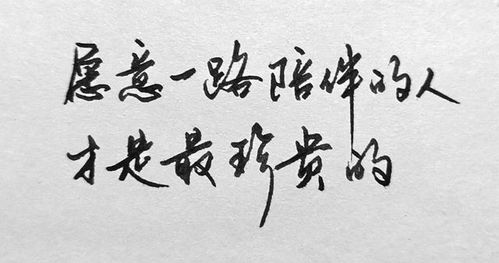 愿意一路陪伴的人
才是最珍贵的